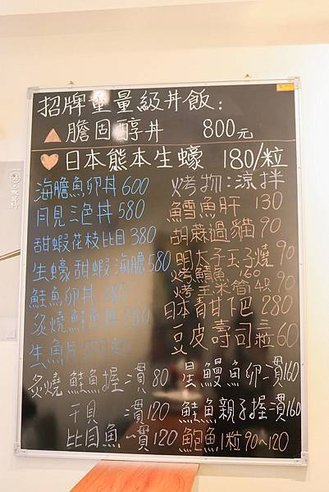 招牌重量級丼飯：
膽固醇丼 800元
日本熊本生蠔 180/粒
海膽魚卵丼 600
月見三色丼 580
甜蝦花枝比目 380
生蠔甜蝦海膽 580
鮭魚卵丼
炙燒鮭魚丼
生魚片
炙燒鮭魚握一貫 80
干貝 一貫 120
比目魚 一貫 120
烤物：涼拌
鱈魚肝 130
胡麻過貓 90
明太子玉子燒 90
烤鯖魚 160
烤玉米筍 4R 90
日本青甘下巴 280
豆皮壽司 三粒 60
星鰻魚卵一貫 160
鮭魚親子握一貫 160
鮑魚 1粒 90~120